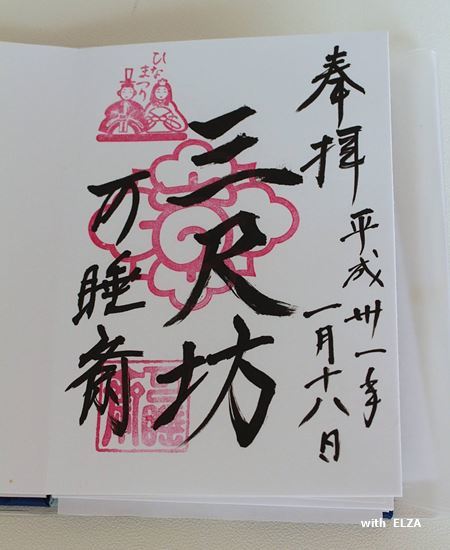 奉拝
平成卅一年
一月十八日
三尺坊
ひな
まつり
可睡斎
with ELZA